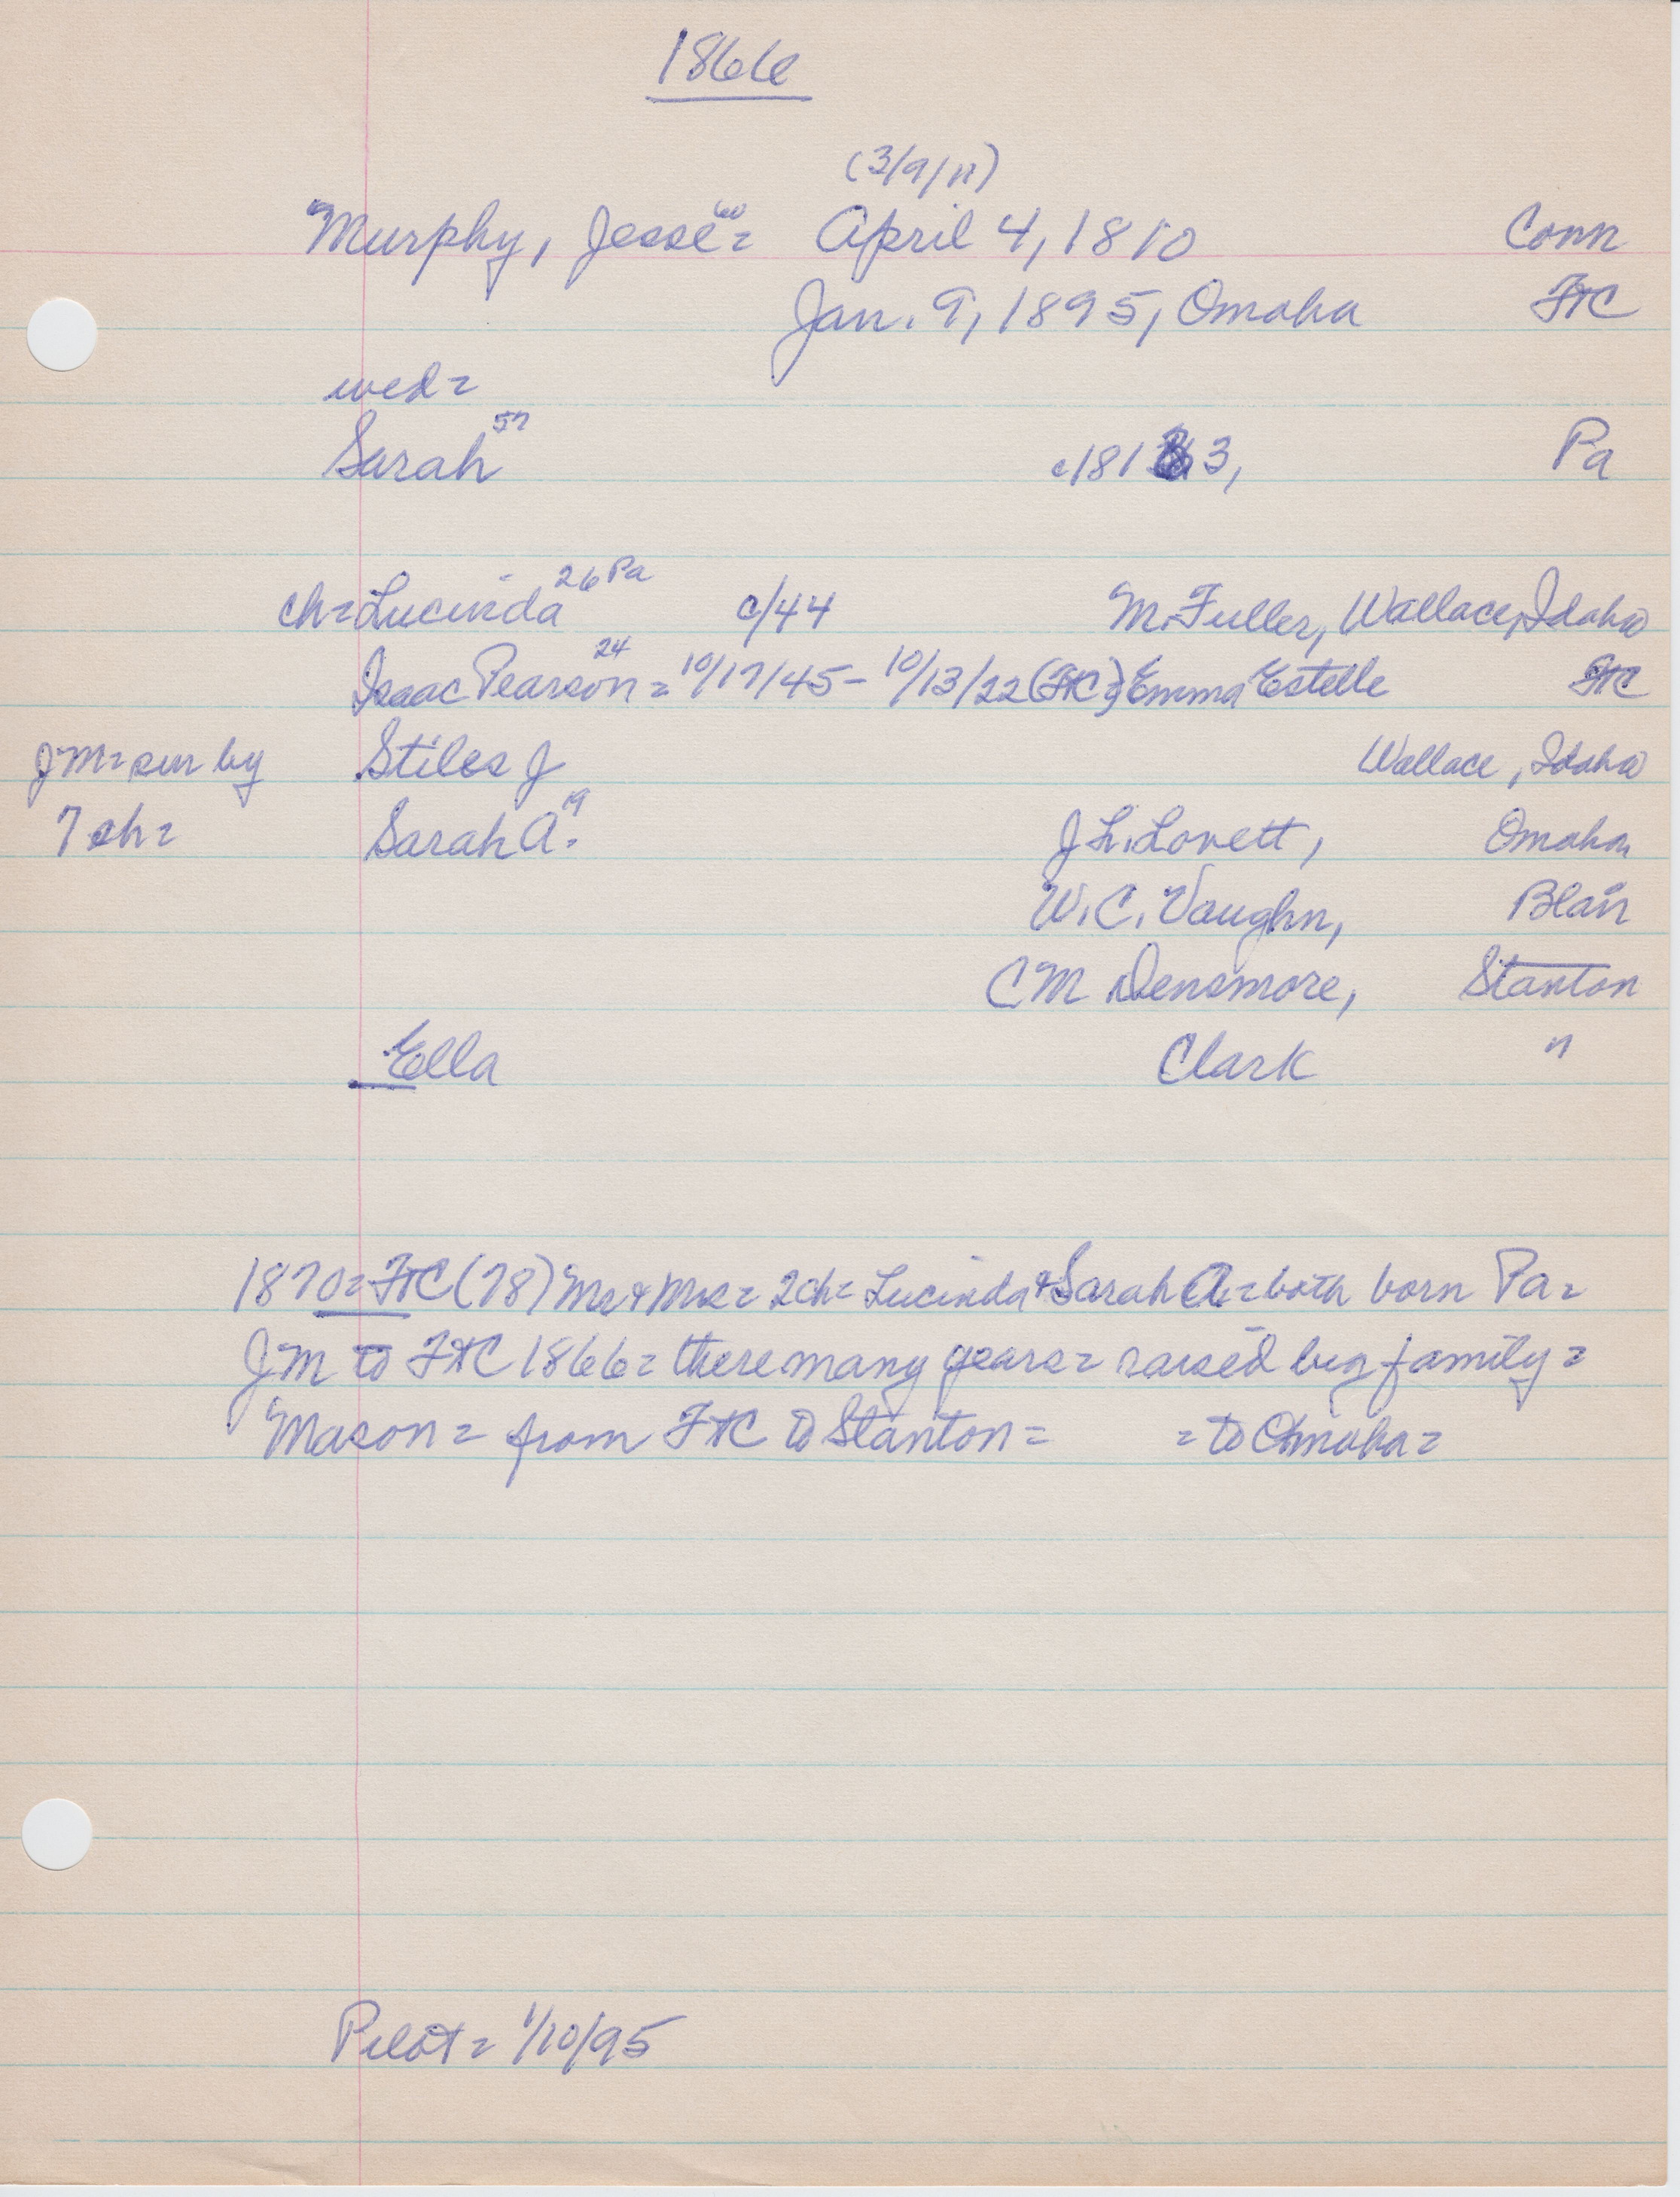 1866
(3/9/11)
Murphy, Jesse 60 = April 4, 1810 Conn
Jan. 9, 1895, Omaha FtC
wed =
Sarah 57 c/813, Pa
ch = Lucinda 26 Pa c/44 M. Fuller, Wallace, Idaho
Isaac Pearson 24 = 10/17/45 - 10/13/22 (FtC) = Emma Estelle FtC
JM = sur by Stiles J Wallace, Idaho
7 ch = Sarah A. 19 J L. Lovett, Omaha
W. C. Vaughn, Blair
C M Densmore, Stanton
Ella Clark "
1870 = FtC (78) Mr & Mrs = 2 ch = Lucinda & Sarah A = both born Pa =
JM to FtC 1866 = there many years = raised big family =
Mason = from FtC to Stanton = = to Omaha =
Pilot = 1/10/95